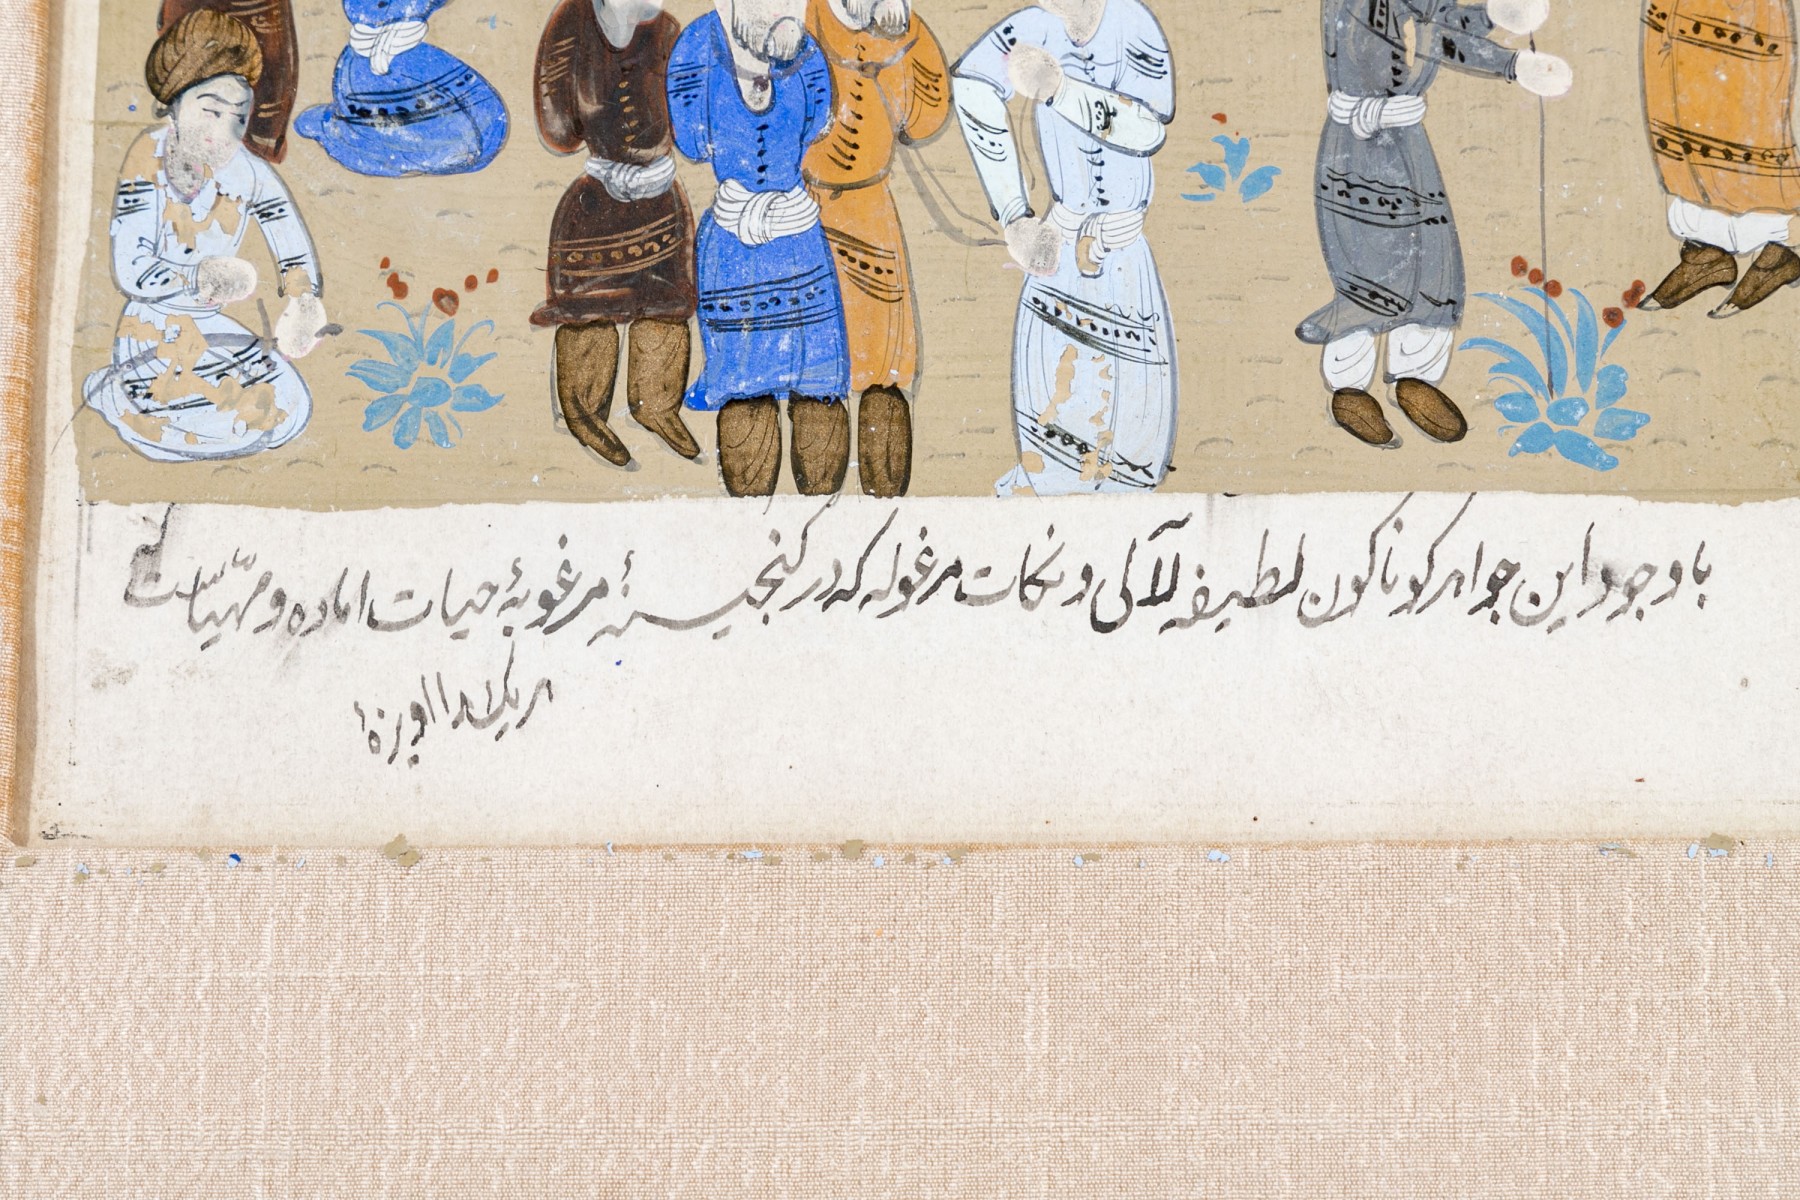 باوجود این جواهر کوناکون لطیفه لآلی و نکات مرغوله که در کنجینهٔ مرغوبهٔ حیات اماده و مهیّاست
هریک را اویزهٔ